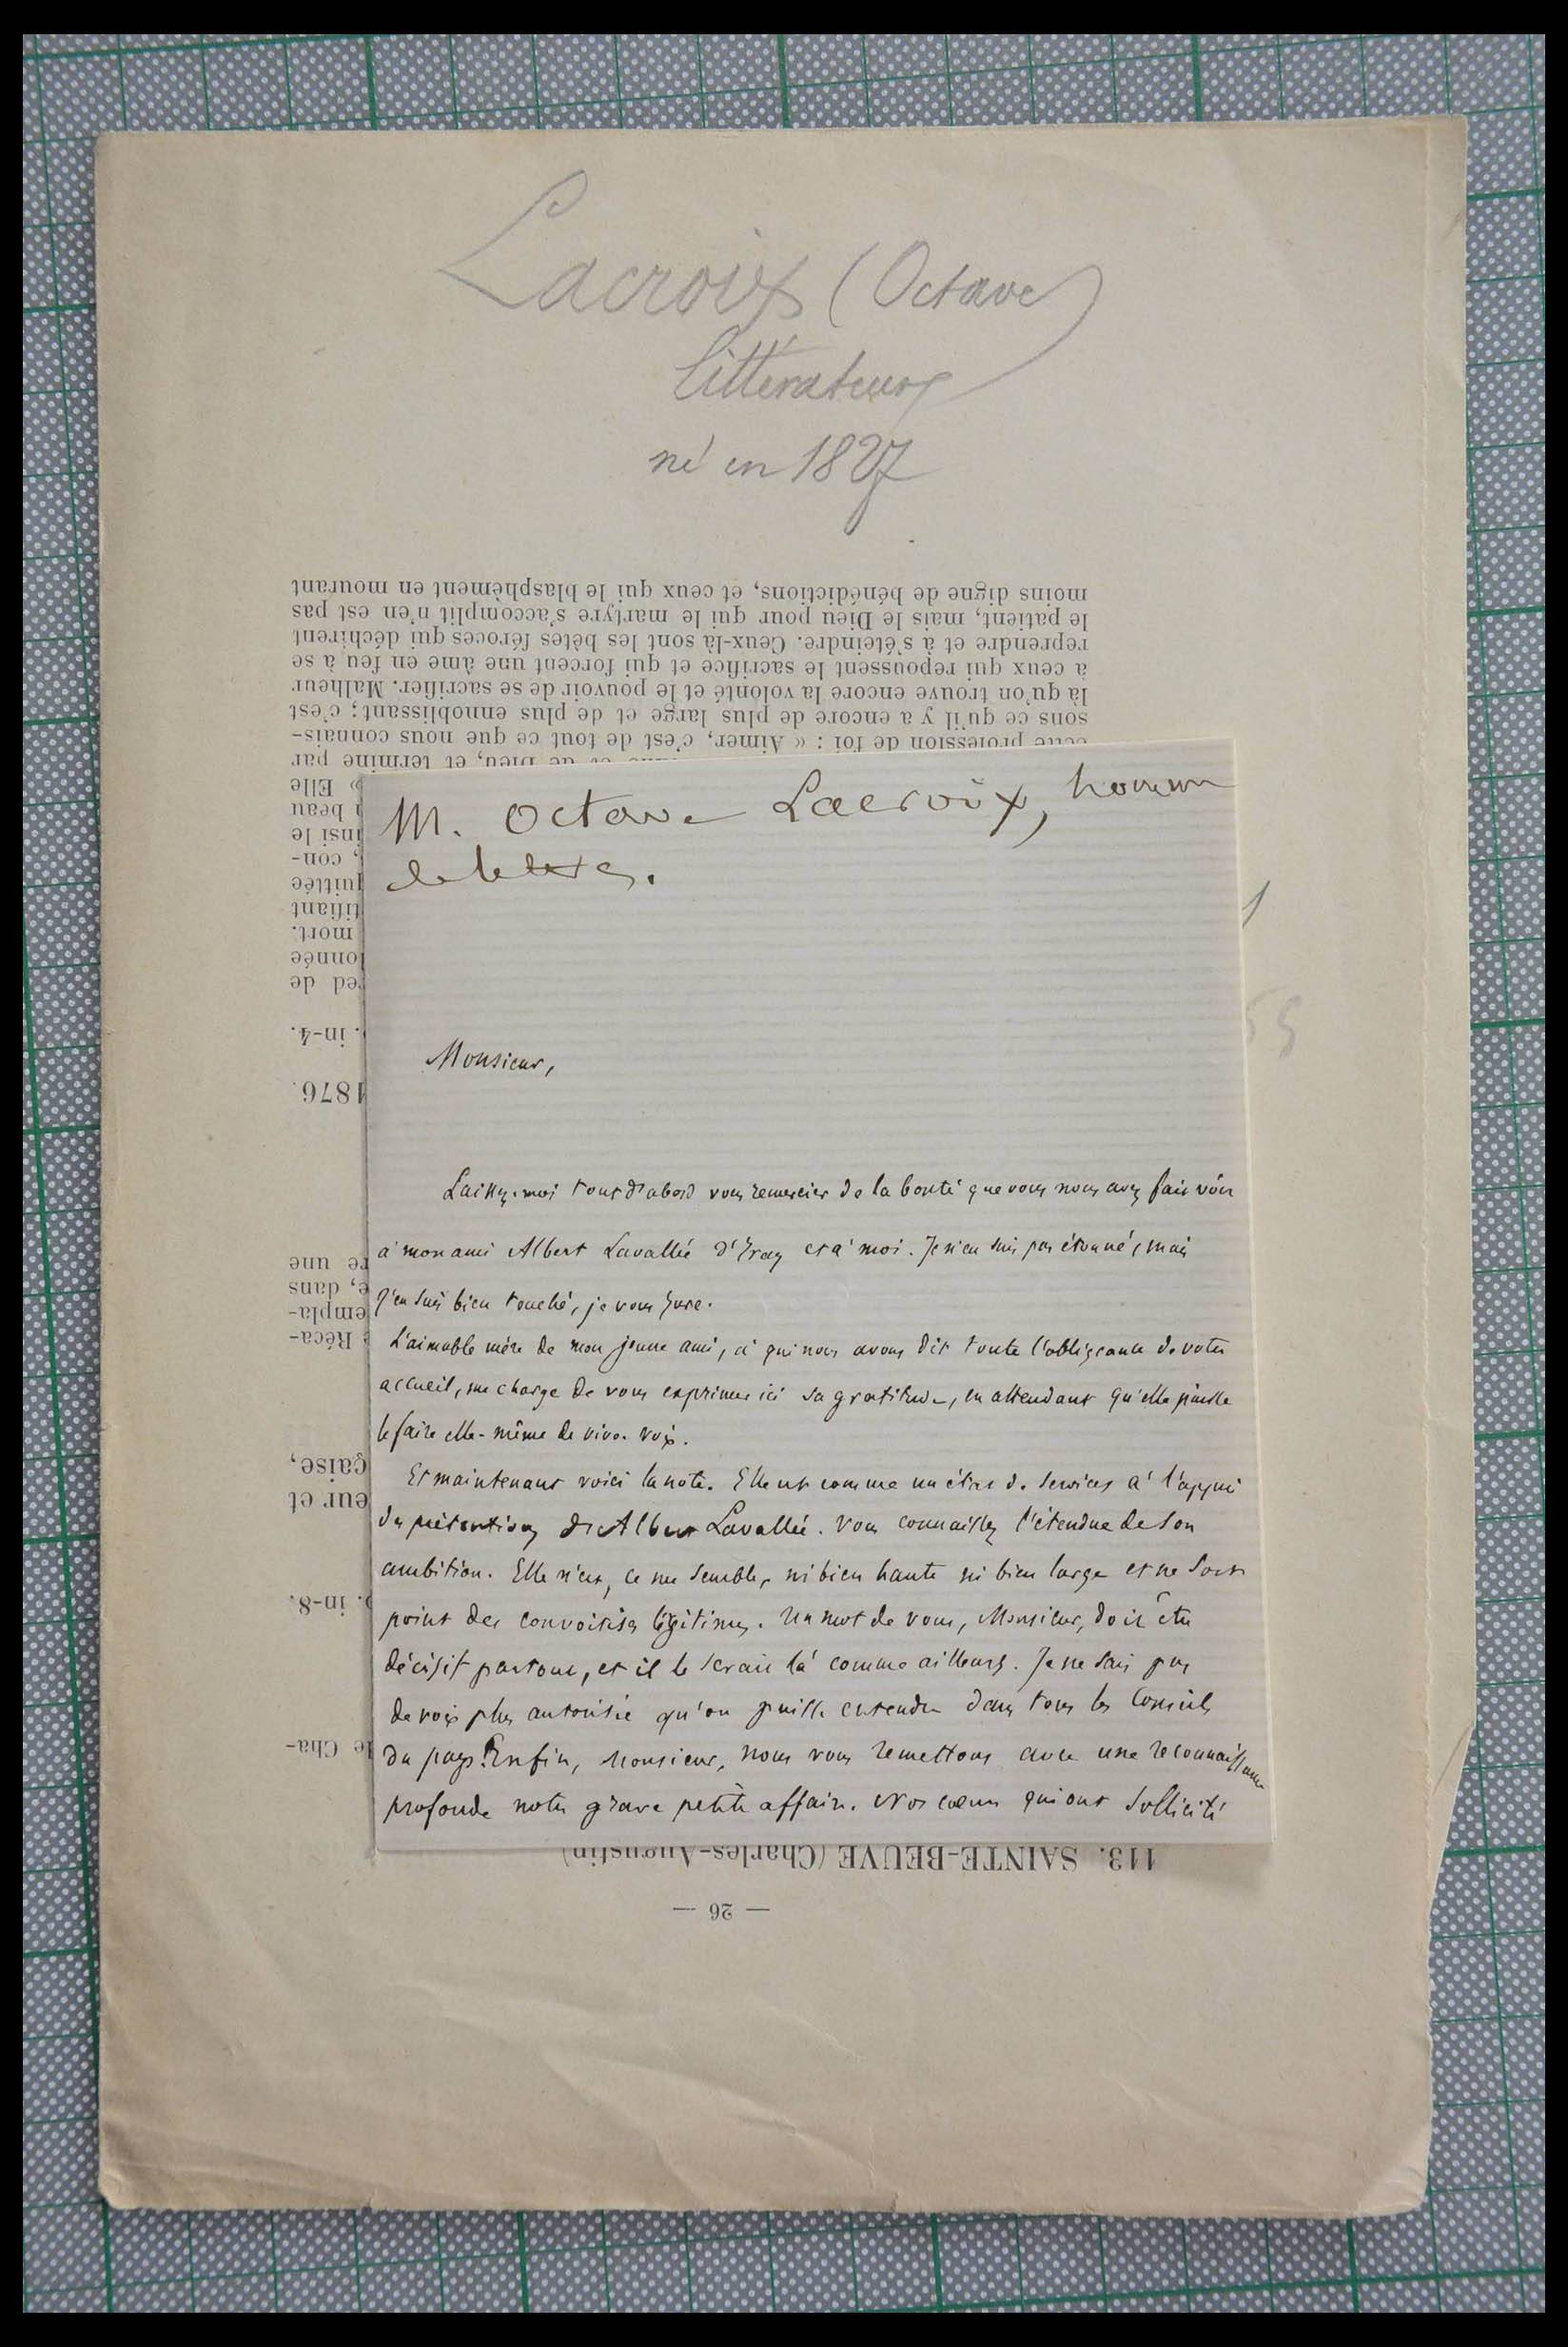 Lacroix (Octave)
littérateur
né en 1827
M. Octave Lacroix, homme
de lettres.
Monsieur,
Laissez-moi tout d'abord vous remercier de la bonté que vous nous avez fait voir
à mon ami Albert Lavallée d' et à moi. Je n'en suis pas étonné, mais
j'en suis bien touché, je vous jure.
L'aimable mère de mon jeune ami, à qui nous avons dit toute l'obligeance de votre
accueil, me charge de vous exprimer ici sa gratitude, en attendant qu'elle puisse
le faire elle-même de vive voix.
Et maintenant voici la note. Elle est comme un état de services à l'appui
des prétentions d'Albert Lavallée. Vous connaissez l'étendue de son
ambition. Elle n'est, ce me semble, ni bien haute ni bien large et ne sort
point des convoitises légitimes. Un mot de vous, Monsieur, doit être
décisif partout, et il le serait là comme ailleurs. Je ne sais pas
de voix plus autorisée qu'on puisse entendre dans tous les Conseils
du pays. Enfin, Monsieur, nous vous remettons avec une reconnaissance
profonde notre grave petite affaire. Nos cœurs qui ont sollicité
— 26 —
113. SAINTE-BEUVE (Charles-Augustin)
le Cha-
. in-8.
eur et
çaise,
Réca-
empla-
e, dans
re une
1876.
. in-4.
red de
onnée
mort.
tifiant
quittée
, con-
insi le
beau
» Elle
et de Dieu, et termine par
cette profession de foi : « Aimer, c'est de tout ce que nous connais-
sons ce qu'il y a encore de plus large et de plus ennoblissant; c'est
là qu'on trouve encore la volonté et le pouvoir de se sacrifier. Malheur
à ceux qui repoussent le sacrifice et qui forcent une âme en feu à se
reprendre et à s'éteindre. Ceux-là sont les bêtes féroces qui déchirent
le patient, mais le Dieu pour qui le martyre s'accomplit n'en est pas
moins digne de bénédictions, et ceux qui le blasphèment en mourant